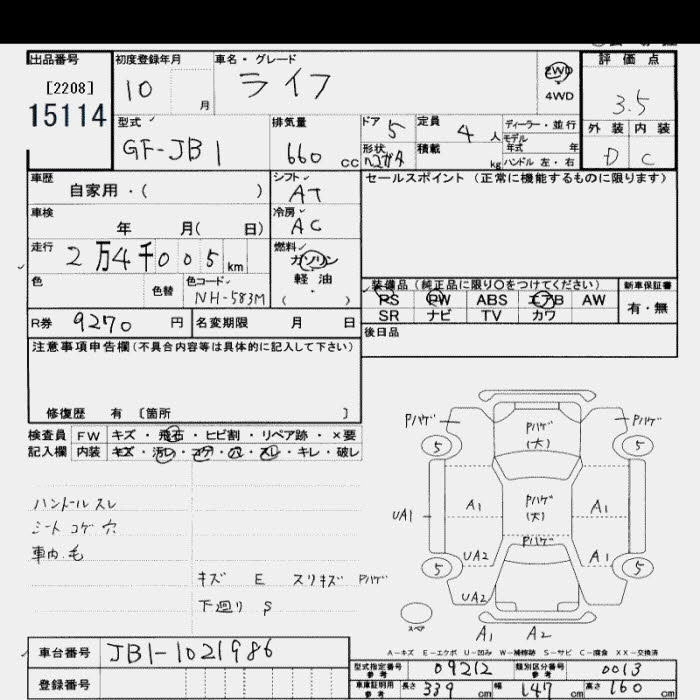 出品番号
[2208]
15114
初度登録年月
10 月
車名・グレード
ライフ
2WD
4WD
評価点
3.5
外装 内装
D C
型式
GF-JB1
排気量
660 cc
ドア 5
定員 4 人
形状
積載 kg
ディーラー・並行
モデル
年式 年
ハンドル 左・右
車歴
自家用・( )
シフト
AT
セールスポイント (正常に機能するものに限ります)
車検
年 月( 日)
冷房
AC
走行
2万4千005 km
燃料
ガソリン
軽油
( )
色
色替
色コード
NH-583M
装備品 (純正品に限り○をつけてください)
PS PW ABS エアB AW
SR ナビ TV カワ
新車保証書
有・無
R券 9270 円
名変期限 月 日
後日品
注意事項申告欄(不具合内容等は具体的に記入して下さい)
修復歴 有 〔箇所 〕
検査員 FW キズ・飛石・ヒビ割・リペア跡・×要
記入欄 内装 キズ・汚レ・コゲ・穴・スレ・キレ・破レ
ハンドル スレ
シート コゲ 穴
車内 毛
キズ E スリキズ Pハゲ
下廻り S
Pハゲ
Pハゲ
(大)
Pハゲ
5
5
UA1
A1
Pハゲ
(大)
A1
Pハゲ
UA2
A1
5
5
UA2
スペア
A1 A2
A-キズ E-エクボ U-凹み W-補修跡 S-サビ C-腐食 XX-交換済
車台番号 JB1-1021986
登録番号
型式指定番号
参考
09212
類別区分番号
参考
0013
車庫証明用
参考
長さ 339 cm 幅 147 cm 高さ 160 cm